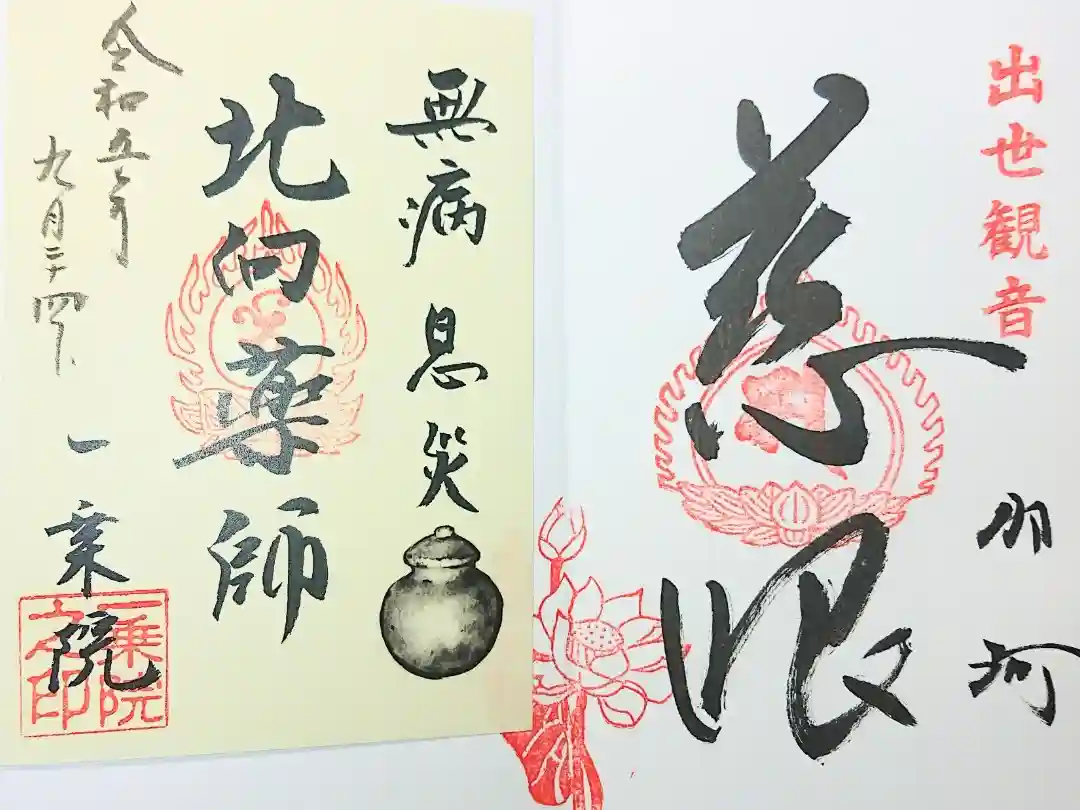 出世観音
那珂
慈眼
無病息災
北向薬師
令和五年
九月二十四日
一乗院
一乗院之印